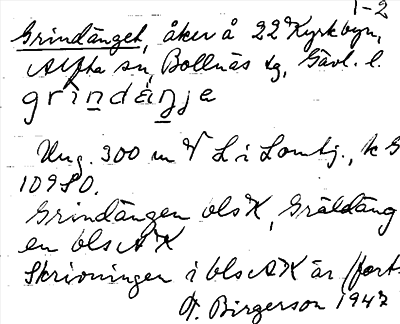 1-2
Grindänget, åker å 22 Kyrkbyn,
Alfta sn, Bollnäs tg, Gävl. l.
grindäŋja
Ung. 300 m V L i Lomtj., k G
10980.
Grindängen bls K, Gräldäng
en bls A K
Skrivningen i bls A K är (forts.
F. Birgerson 1947